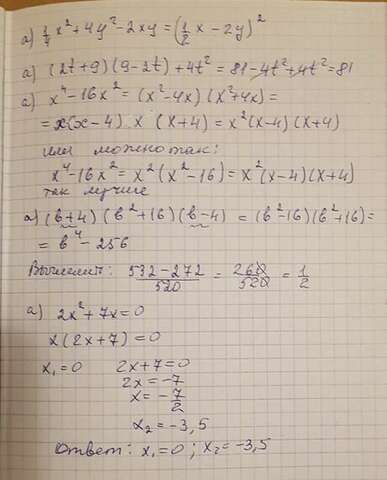 а) 1/4 x² + 4y² - 2xy = (1/2 x - 2y)²
а) (2t+9)(9-2t) + 4t² = 81 - 4t² + 4t² = 81
а) x⁴ - 16x² = (x² - 4x)(x² + 4x) =
= x(x-4) x (x+4) = x²(x-4)(x+4)
или можно так:
x⁴ - 16x² = x²(x² - 16) = x²(x-4)(x+4)
так лучше
а) (в+4)(в²+16)(в-4) = (в²-16)(в²+16) =
= в⁴ - 256
Вычислить: (532 - 272)/520 = 260/520 = 1/2
а) 2x² + 7x = 0
x(2x+7) = 0
x₁ = 0 2x+7 = 0
2x = -7
x = -7/2
x₂ = -3,5
Ответ: x₁ = 0; x₂ = -3,5